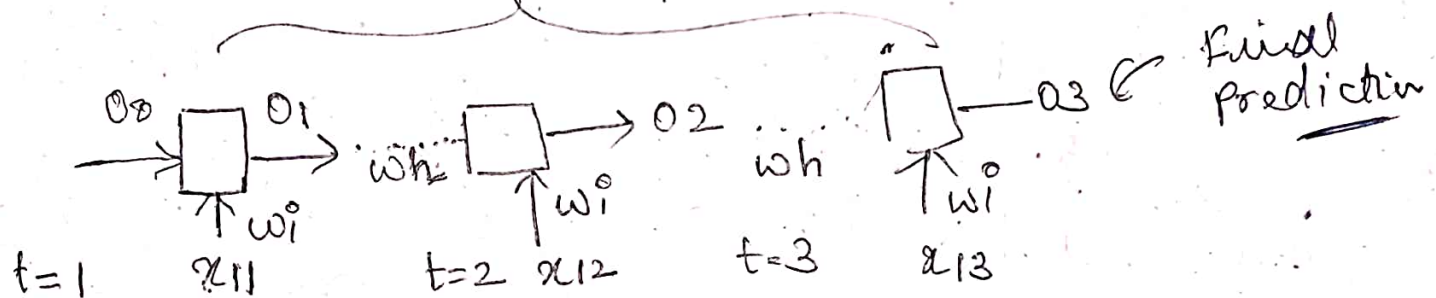 O0 O1 wh O2 wh O3 Final
prediction
wi wi wi
t=1 x11 t=2 x12 t=3 x13